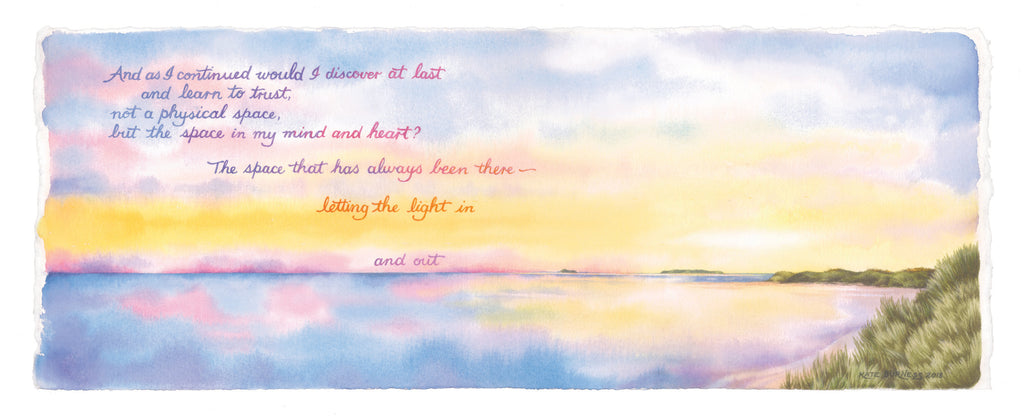 And as I continued would I discover at last
and learn to trust,
not a physical space,
but the space in my mind and heart?
The space that has always been there —
letting the light in
and out
KATE BURNESS 2013